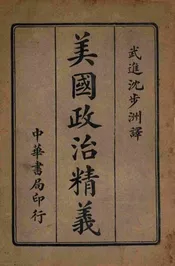 武進沈步洲譯
美國政治精義
中華書局印行